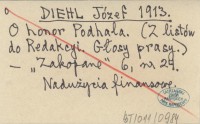 DIEHL Józef 1913.
O honor Podhala. (Z listów
do Redakcyi. Głosy prasy.)
— „Zakopane" 6, nr 24.
Nadużycia finansowe.
AT/011/0914